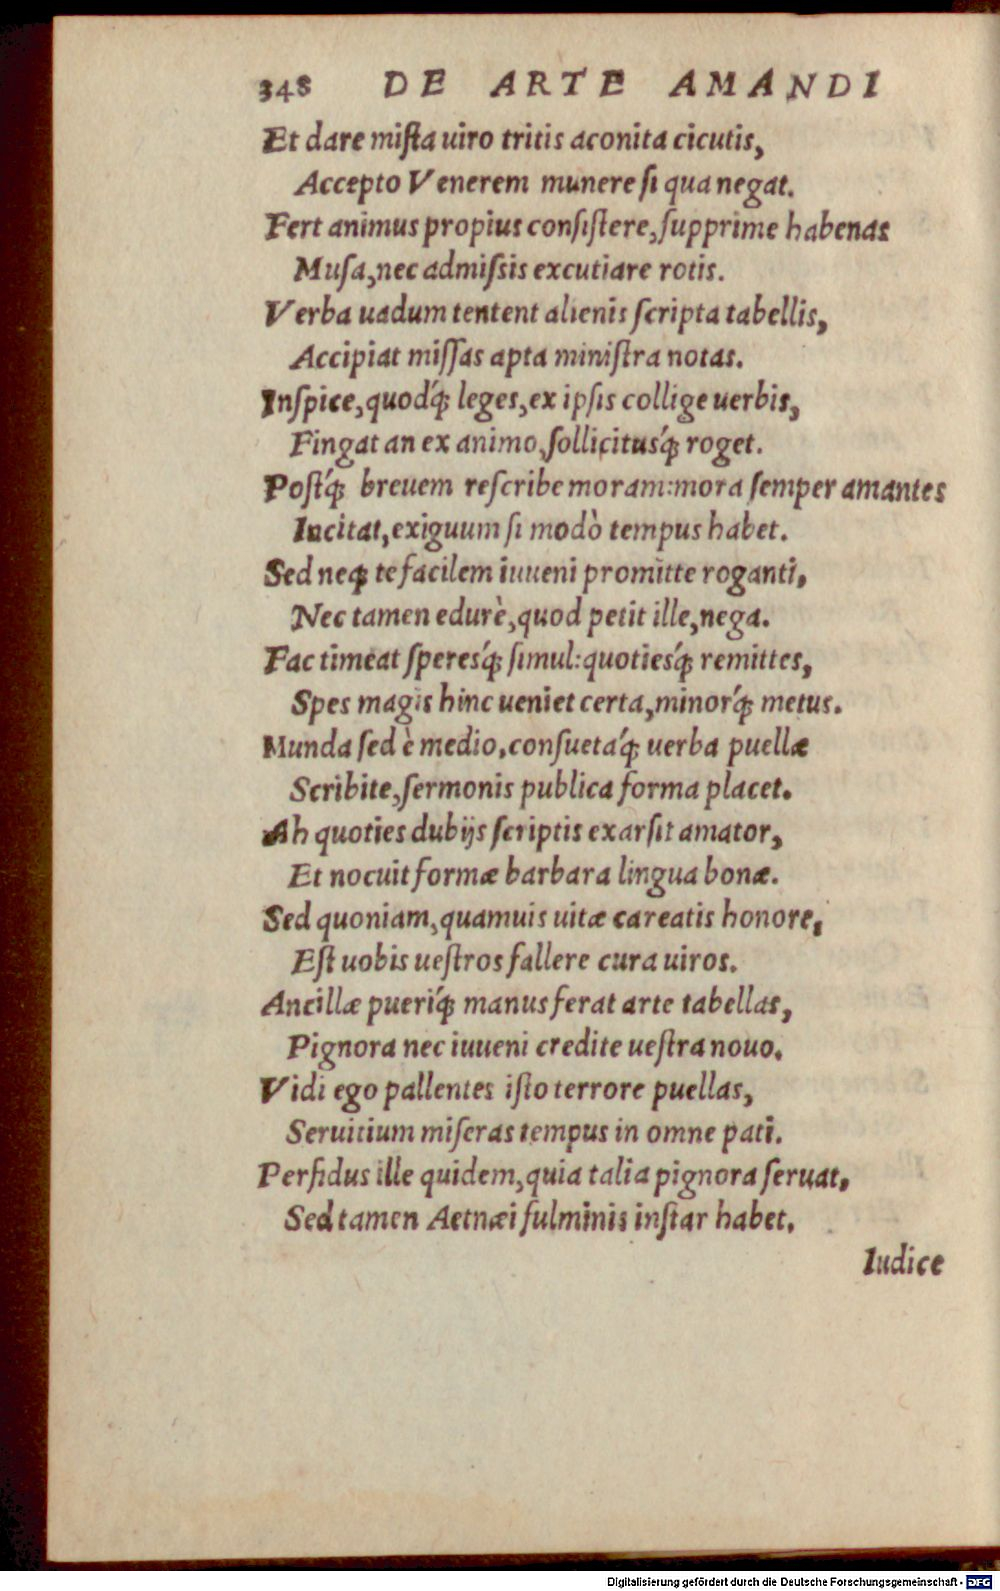 348 DE ARTE AMANDI
Et dare mista uiro tritis aconita cicutis,
Accepto Venerem munere si qua negat.
Fert animus propius consistere, supprime habenas
Musa, nec admissis excutiare rotis.
Verba uadum tentent alienis scripta tabellis,
Accipiat missas apta ministra notas.
Inspice, quodq́; leges, ex ipsis collige uerbis,
Fingat an ex animo, sollicitusq́; roget.
Postq́; breuem rescribe moram: mora semper amantes
Incitat, exiguum si modò tempus habet.
Sed neq; te facilem iuueni promitte roganti,
Nec tamen edurè, quod petit ille, nega.
Fac timeat speresq́; simul: quotiesq́; remittes,
Spes magis hinc ueniet certa, minorq́; metus.
Munda sed è medio, consuetaq́; uerba puellæ
Scribite, sermonis publica forma placet.
Ah quoties dubijs scriptis exarsit amator,
Et nocuit formæ barbara lingua bonæ.
Sed quoniam, quamuis uitæ careatis honore,
Est uobis uestros fallere cura uiros.
Ancillæ pueriq́; manus ferat arte tabellas,
Pignora nec iuueni credite uestra nouo.
Vidi ego pallentes isto terrore puellas,
Seruitium miseras tempus in omne pati.
Perfidus ille quidem, quia talia pignora seruat,
Sed tamen Aetnæi fulminis instar habet.
Iudice
Digitalisierung gefördert durch die Deutsche Forschungsgemeinschaft - DFG